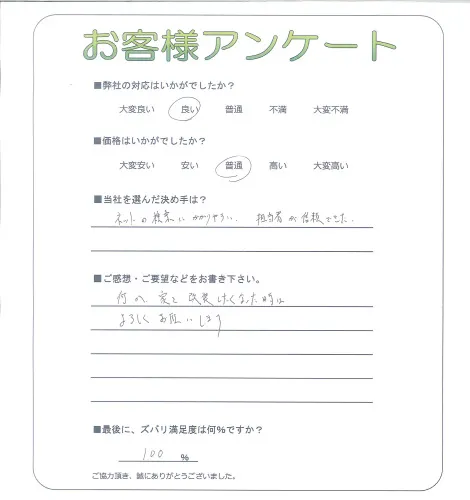 お客様アンケート
■弊社の対応はいかがでしたか？
大変良い 良い 普通 不満 大変不満
■価格はいかがでしたか？
大変安い 安い 普通 高い 大変高い
■当社を選んだ決め手は？
ネットの検索に かかりやすい. 担当者が信頼できた.
■ご感想・ご要望などをお書き下さい。
何か 家を 改装したくなった時は
よろしくお願いします
■最後に、ズバリ満足度は何%ですか？
100 %
ご協力頂き、誠にありがとうございました。